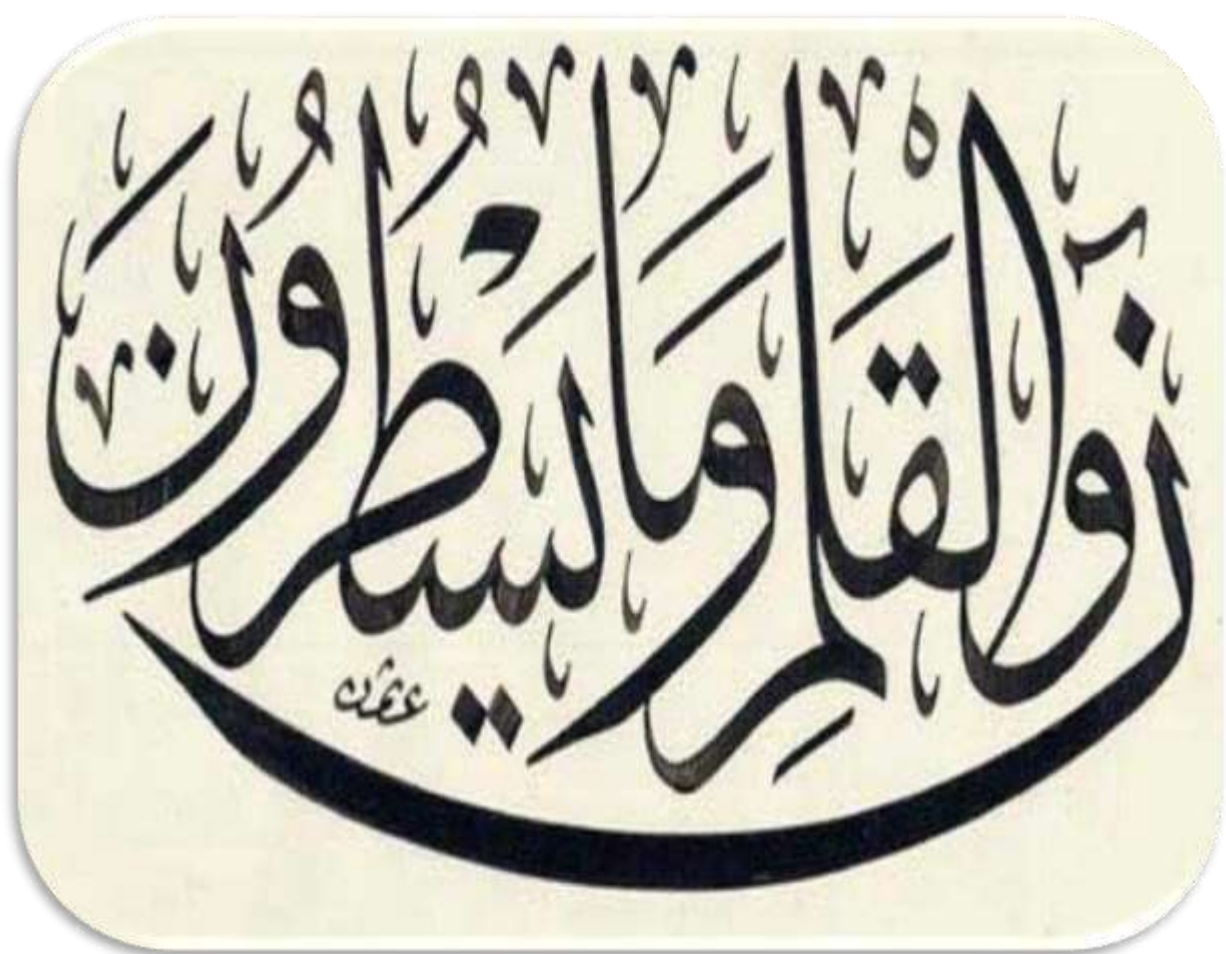 نٓ وَالْقَلَمِ وَمَا يَسْطُرُونَ
عثمان